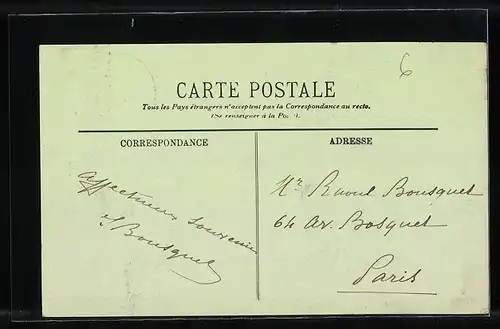 6
CARTE POSTALE
Tous les Pays étrangers n'acceptent pas la Correspondance au recto.
(Se renseigner à la Pos ).
CORRESPONDANCE
ADRESSE
Affectueux souvenir
Bousquet
Mr Raoul Bousquet
64 Av. Bosquet
Paris